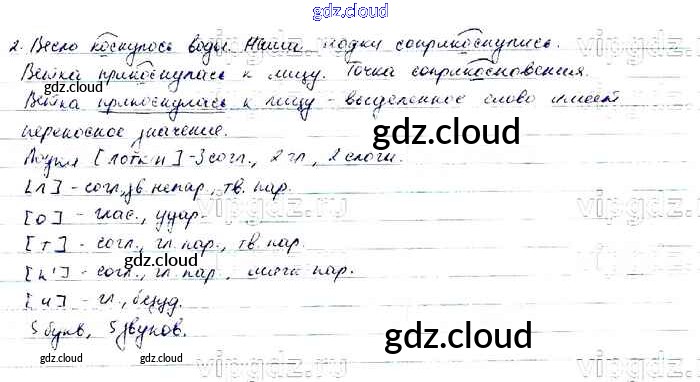 gdz.cloud
2. Весло коснулось воды. Наши лодки соприкоснулись.
Ветка прикоснулась к лицу. Точка соприкосновения.
Ветка прикоснулась к лицу - выделенное слово имеет
переносное значение.
[лотк'и] - 3 согл., 2 гл., 2 слога.
[л] - согл., зв. непар., тв. пар.
[о] - глас., удар.
[т] - согл., гл. пар., тв. пар.
[к'] - согл., гл. пар., мягк. пар.
[и] - гл., безуд.
5 букв, 5 звуков.
vipgdz.ru
gdz.cloud
gdz.cloud
gdz.cloud
gdz.cloud
gdz.cloud
gdz.cloud
gdz.cloud